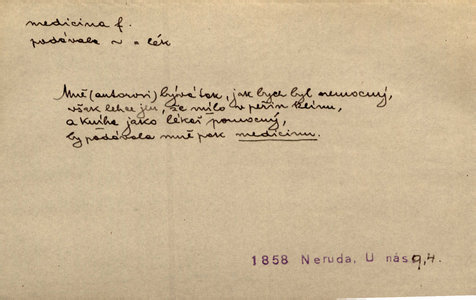 medicina f.
podávala ~ = lék
Mně (autorovi) bývá tak, jak bych byl nemocný,
však lehce jen, že milo v peřin klínu,
a kniha jako lékař pomocný,
by podávala mně pak medicinu.
1858 Neruda, U nás 9,4.